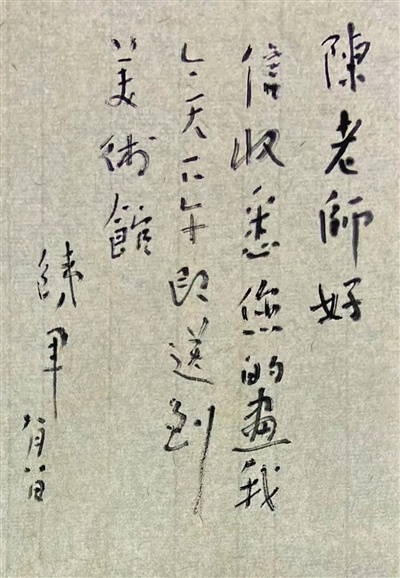 陳老師好
信收悉您的畫我
今天下午即送到
美術館
軍